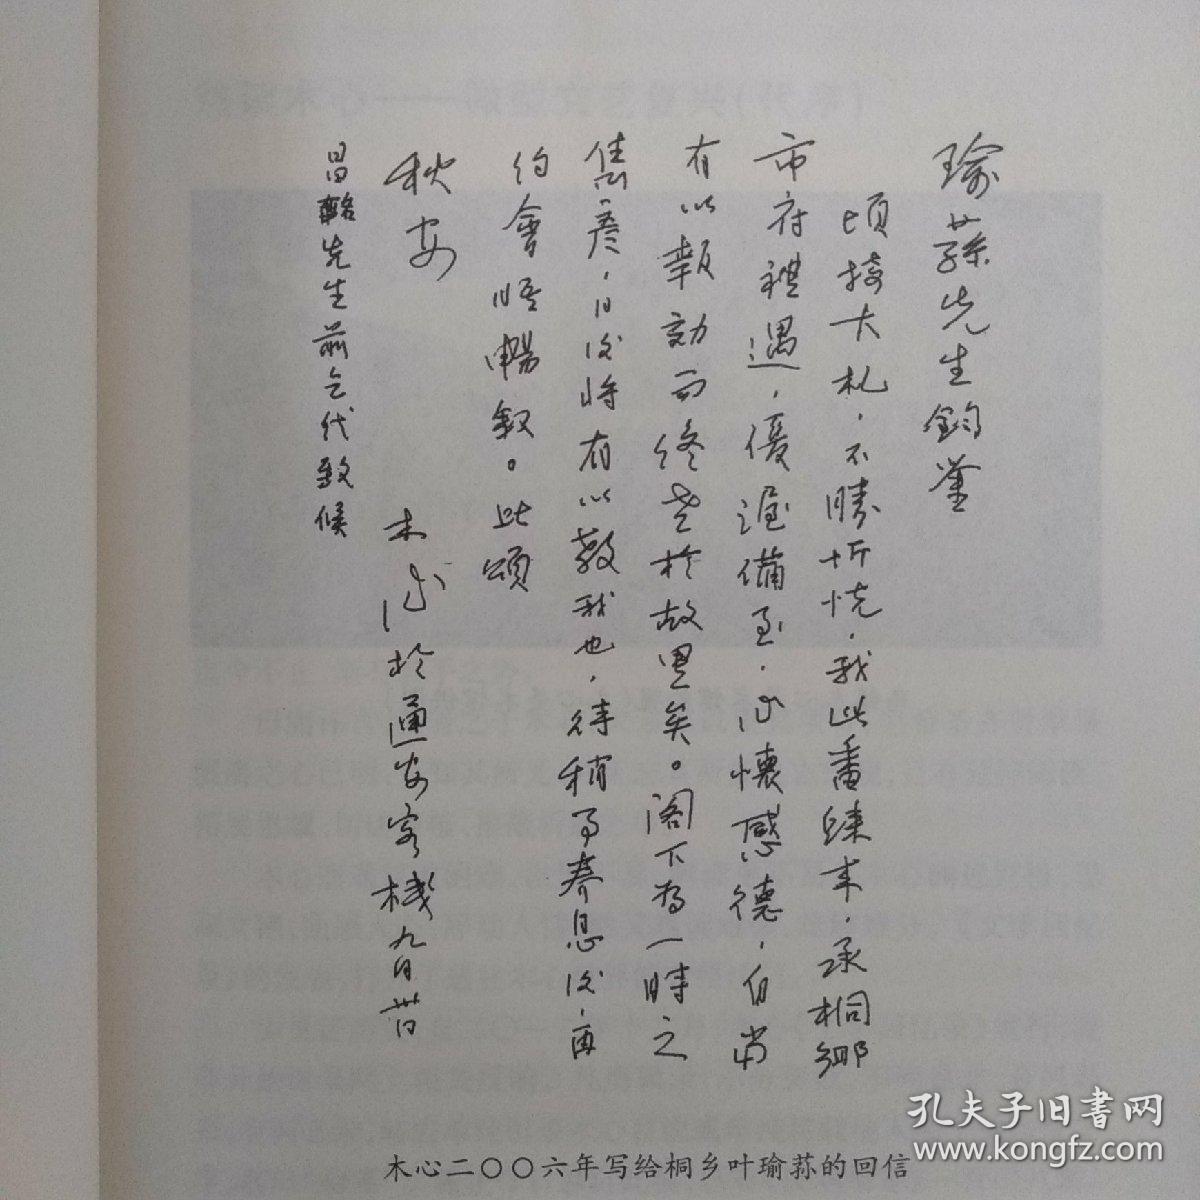 瑜蓀先生鈞鑒
頃接大札，不勝忻悅，我此番歸來，承桐鄉
市府禮遇，優渥備至，心懷感德，自當
有以報効而終老於故里矣。閣下為一時之
儁彥，日後將有以教我也，待稍事養息後，再
約會晤暢敘。此頌
秋安
木心於通安客棧九月卅日
昌 先生前乞代致候
木心二〇〇六年写给桐乡叶瑜荪的回信
孔夫子旧书网
www.kongfz.com